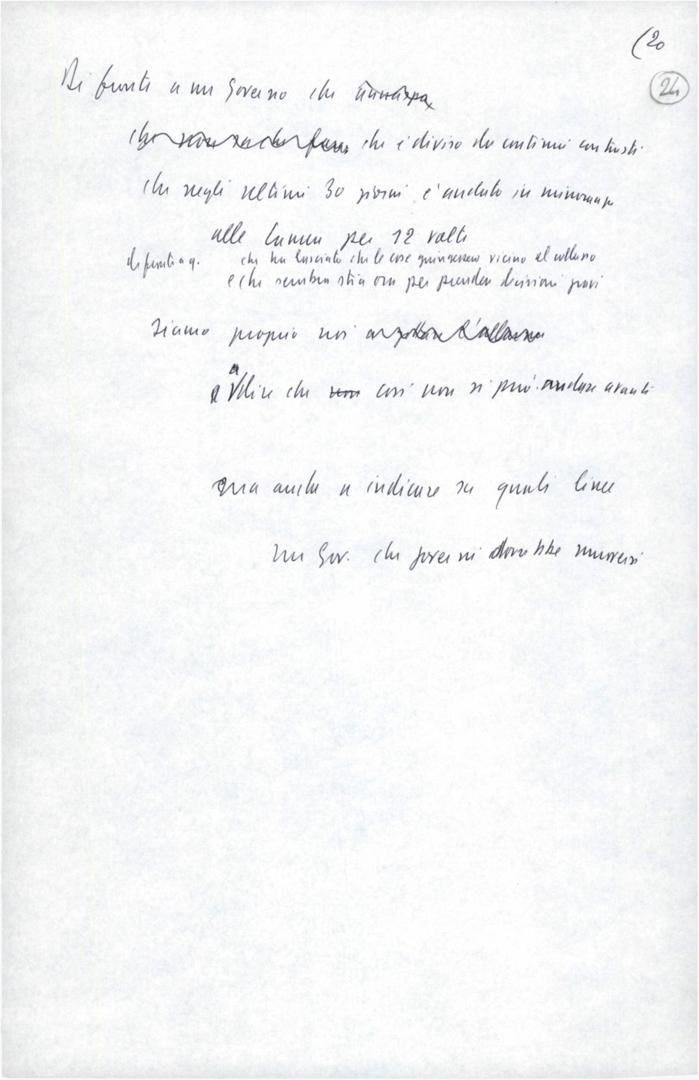 (20
24
Di fronte a un Governo che
che che è diviso da continui contrasti
che negli ultimi 30 giorni è andato in minoranza
alla Camera per 12 volte
di fronte a q. che ha lasciato che le cose giungessero vicino al collasso
e che sembra stia ora per prendere decisioni gravi
siamo proprio noi a
a dire che non così non si può andare avanti
ma anche a indicare su quali linee
un Gov. che governi dovrebbe muoversi